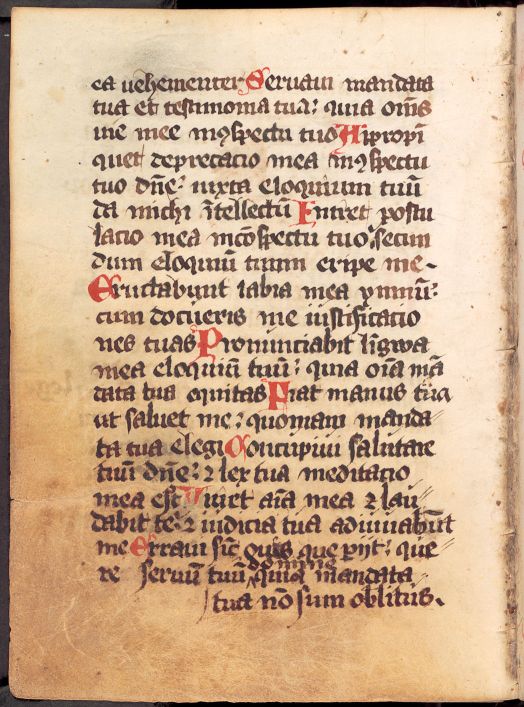 ea vehementer Servavi mandata
tua et testimonia tua: quia om̄s
vie mee in ꝯspectu tuo Appropī
quet deprecacio mea in ꝯspectu
tuo dn̄e: iuxta eloquium tuū
da michi ītellectū Intret postu
lacio mea in cōspectu tuo: secun
dum eloquiū tuum eripe me-
Eructabunt labia mea ymnū:
cum docueris me iustificacio
nes tuas Pronunciabit lingwa
mea eloquiū tuū: quia oīa mā
data tua equitas Fiat manus tua
ut salvet me: quoniam manda-
ta tua elegi Concupivi salutare
tuū dn̄e: ⁊ lex tua meditacio
mea est Vivet aīa mea ⁊ lau
dabit te: ⁊ iudicia tua adiuvabūt
me Erravi sic̄ ovis que pijt: que
domine
re servū tuū quia mandata
tua nō sum oblitus.